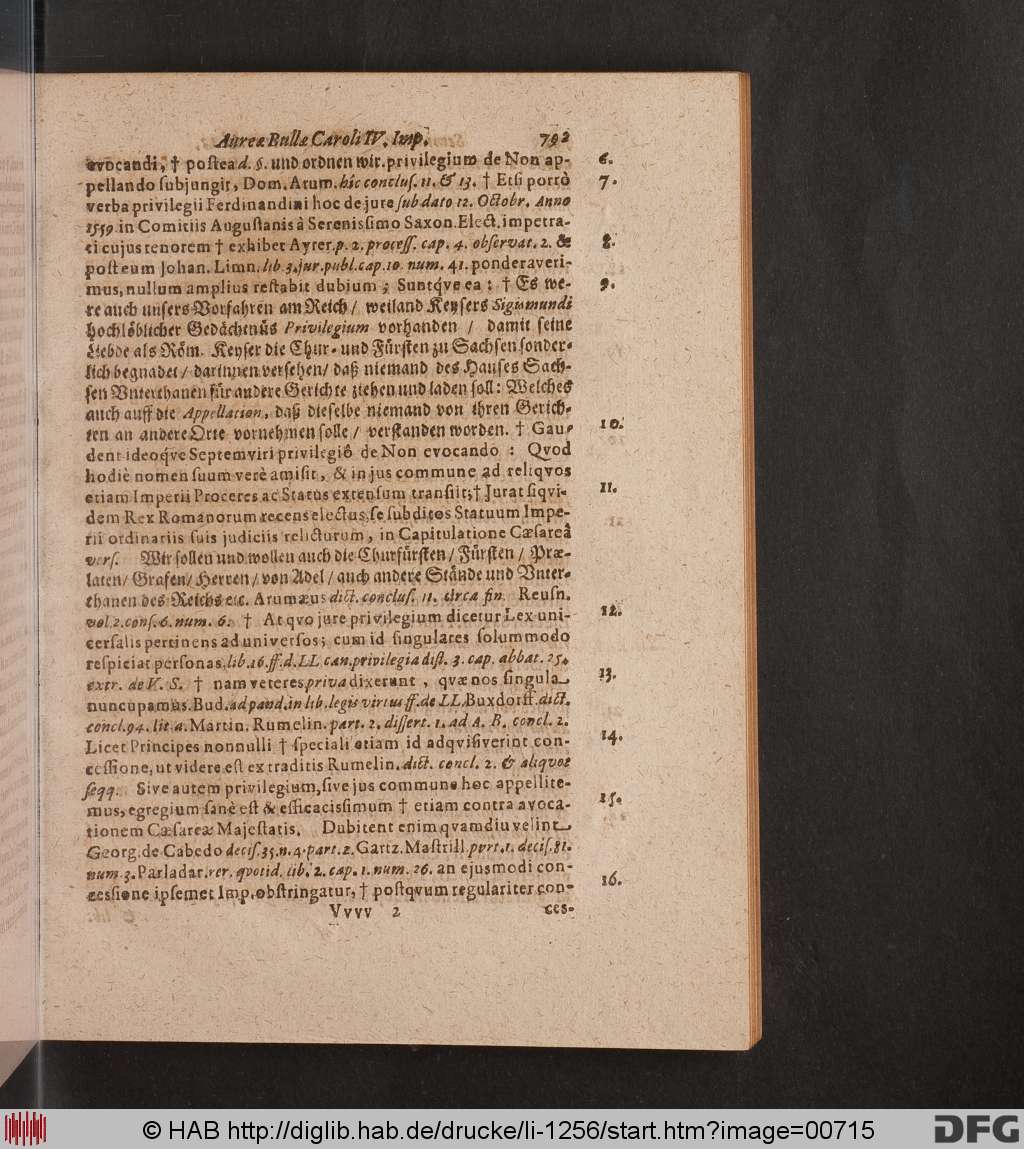 Aureæ Bullæ Caroli IV. Imp. 792
evocandi, † postea d. §. und ordnen wir. privilegium de Non ap- 6.
pellando subjungit, Dom. Arum. hîc conclus. 11. & 13. † Etsi porrò 7.
verba privilegii Ferdinandini hoc de jure sub dato 12. Octobr. Anno
1559 in Comitiis Augustanis à Serenissimo Saxon. Elect. impetra-
ti cujus tenorem † exhibet Ayrer. p. 2. process. cap. 4. observat. 2. & 8.
post eum Johan. Limn. lib. 3. jur. publ. cap. 10. num. 41. ponderaveri-
mus, nullum amplius restabit dubium; Suntqve ea: † Es we- 9.
re auch unsers Vorfahren am Reich/ weiland Keysers Sigismundi
hochlöblicher Gedächtnüs Privilegium vorhanden / damit seine
Liebde als Röm. Keyser die Chur- und Fürsten zu Sachsen sonder-
lich begnadet/ darinnen versehen/ daß niemand des Hauses Sach-
sen Unterthanen für andere Gerichte ziehen und laden soll: Welches
auch auff die Appellation, daß dieselbe niemand von ihren Gerich-
ten an andere Orte vornehmen solle/ verstanden worden. † Gau- 10.
dent ideoqve Septemviri privilegiô de Non evocando: Qvod
hodiè nomen suum verè amisit, & in jus commune ad reliqvos
etiam Imperii Proceres ac Status extensum transiit; † Jurat siqvi- 11.
dem Rex Romanorum recens electus, se subditos Statuum Impe-
rii ordinariis suis judiciis relicturum, in Capitulatione Cæsareâ
vers. Wir sollen und wollen auch die Churfürsten/ Fürsten / Præ-
laten/ Grafen/ Herren/ von Adel/ auch andere Stände und Unter-
thanen des Reichs etc. Arumæus dict. conclus. 11. circa fin. Reusn.
vol. 2. cons. 6. num. 6. † At qvo jure privilegium dicetur Lex uni- 12.
cersalis pertinens ad universos; cum id singulares solummodo
respiciat personas, lib. 16. ff. d. LL. can. privilegia dist. 3. cap. abbat. 25.
extr. de V. S. † nam veteres priva dixerunt, qvæ nos singula 13.
nuncupamus. Bud. ad pand. in lib. legis virtus ff. de LL. Buxdorff. dict.
concl. 94. lit. a. Martin. Rumelin. part. 2. dissert. 1. ad A. B. concl. 2.
Licet Principes nonnulli † speciali etiam id adqvisiverint con- 14.
cessione, ut videre est ex traditis Rumelin. dict. concl. 2. & aliqvot
seqq. Sive autem privilegium, sive jus commune hoc appellite-
mus, egregium sanè est & efficacissimum † etiam contra avoca- 15.
tionem Cæsareæ Majestatis. Dubitent enim qvamdiu velint
Georg. de Cabedo decis. 35. n. 4. part. 2. Gartz. Mastrill. part. 1. decis. 81.
num. 3. Parladar. rer. quotid. lib. 2. cap. 1. num. 26. an ejusmodi con-
cessione ipsemet Imp. obstringatur, † postqvum regulariter con- 16.
Vvvv 2 ces-
© HAB http://diglib.hab.de/drucke/li-1256/start.htm?image=00715 DFG